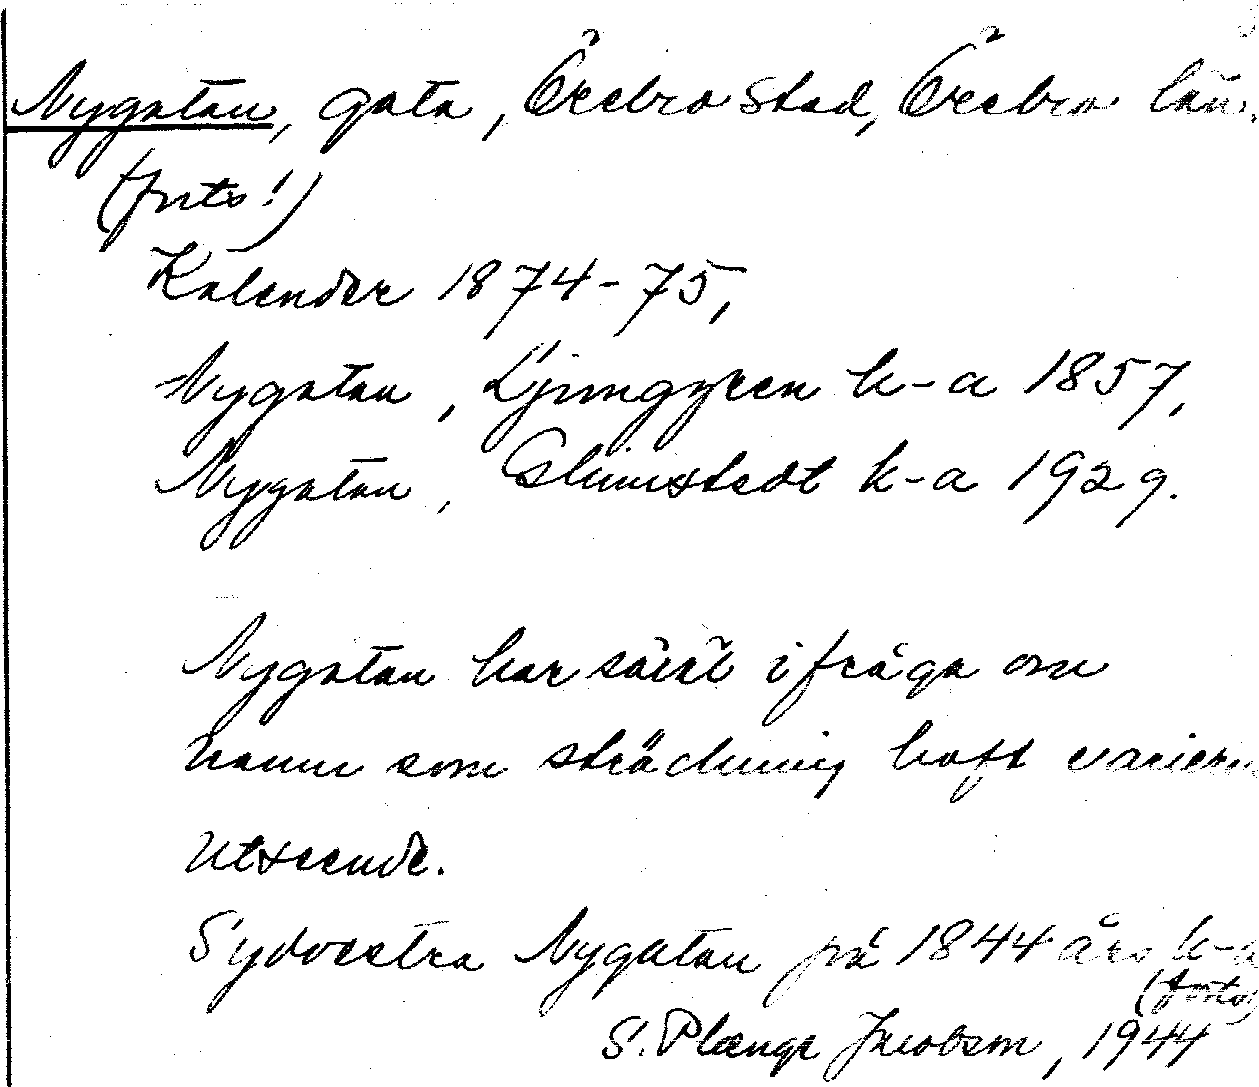 Nygatan, gata, Örebro stad, Örebro län.
(forts!)
Kalender 1874-75,
Nygatan, Ljunggren k-a 1857,
Nygatan, Glimstedt k-a 1929.
Nygatan har såväl i fråga om
namn som sträckning haft
utseende.
Sydvestra Nygatan på 1844 års k-a
(forts)
S. Plænge Jacobson, 1944